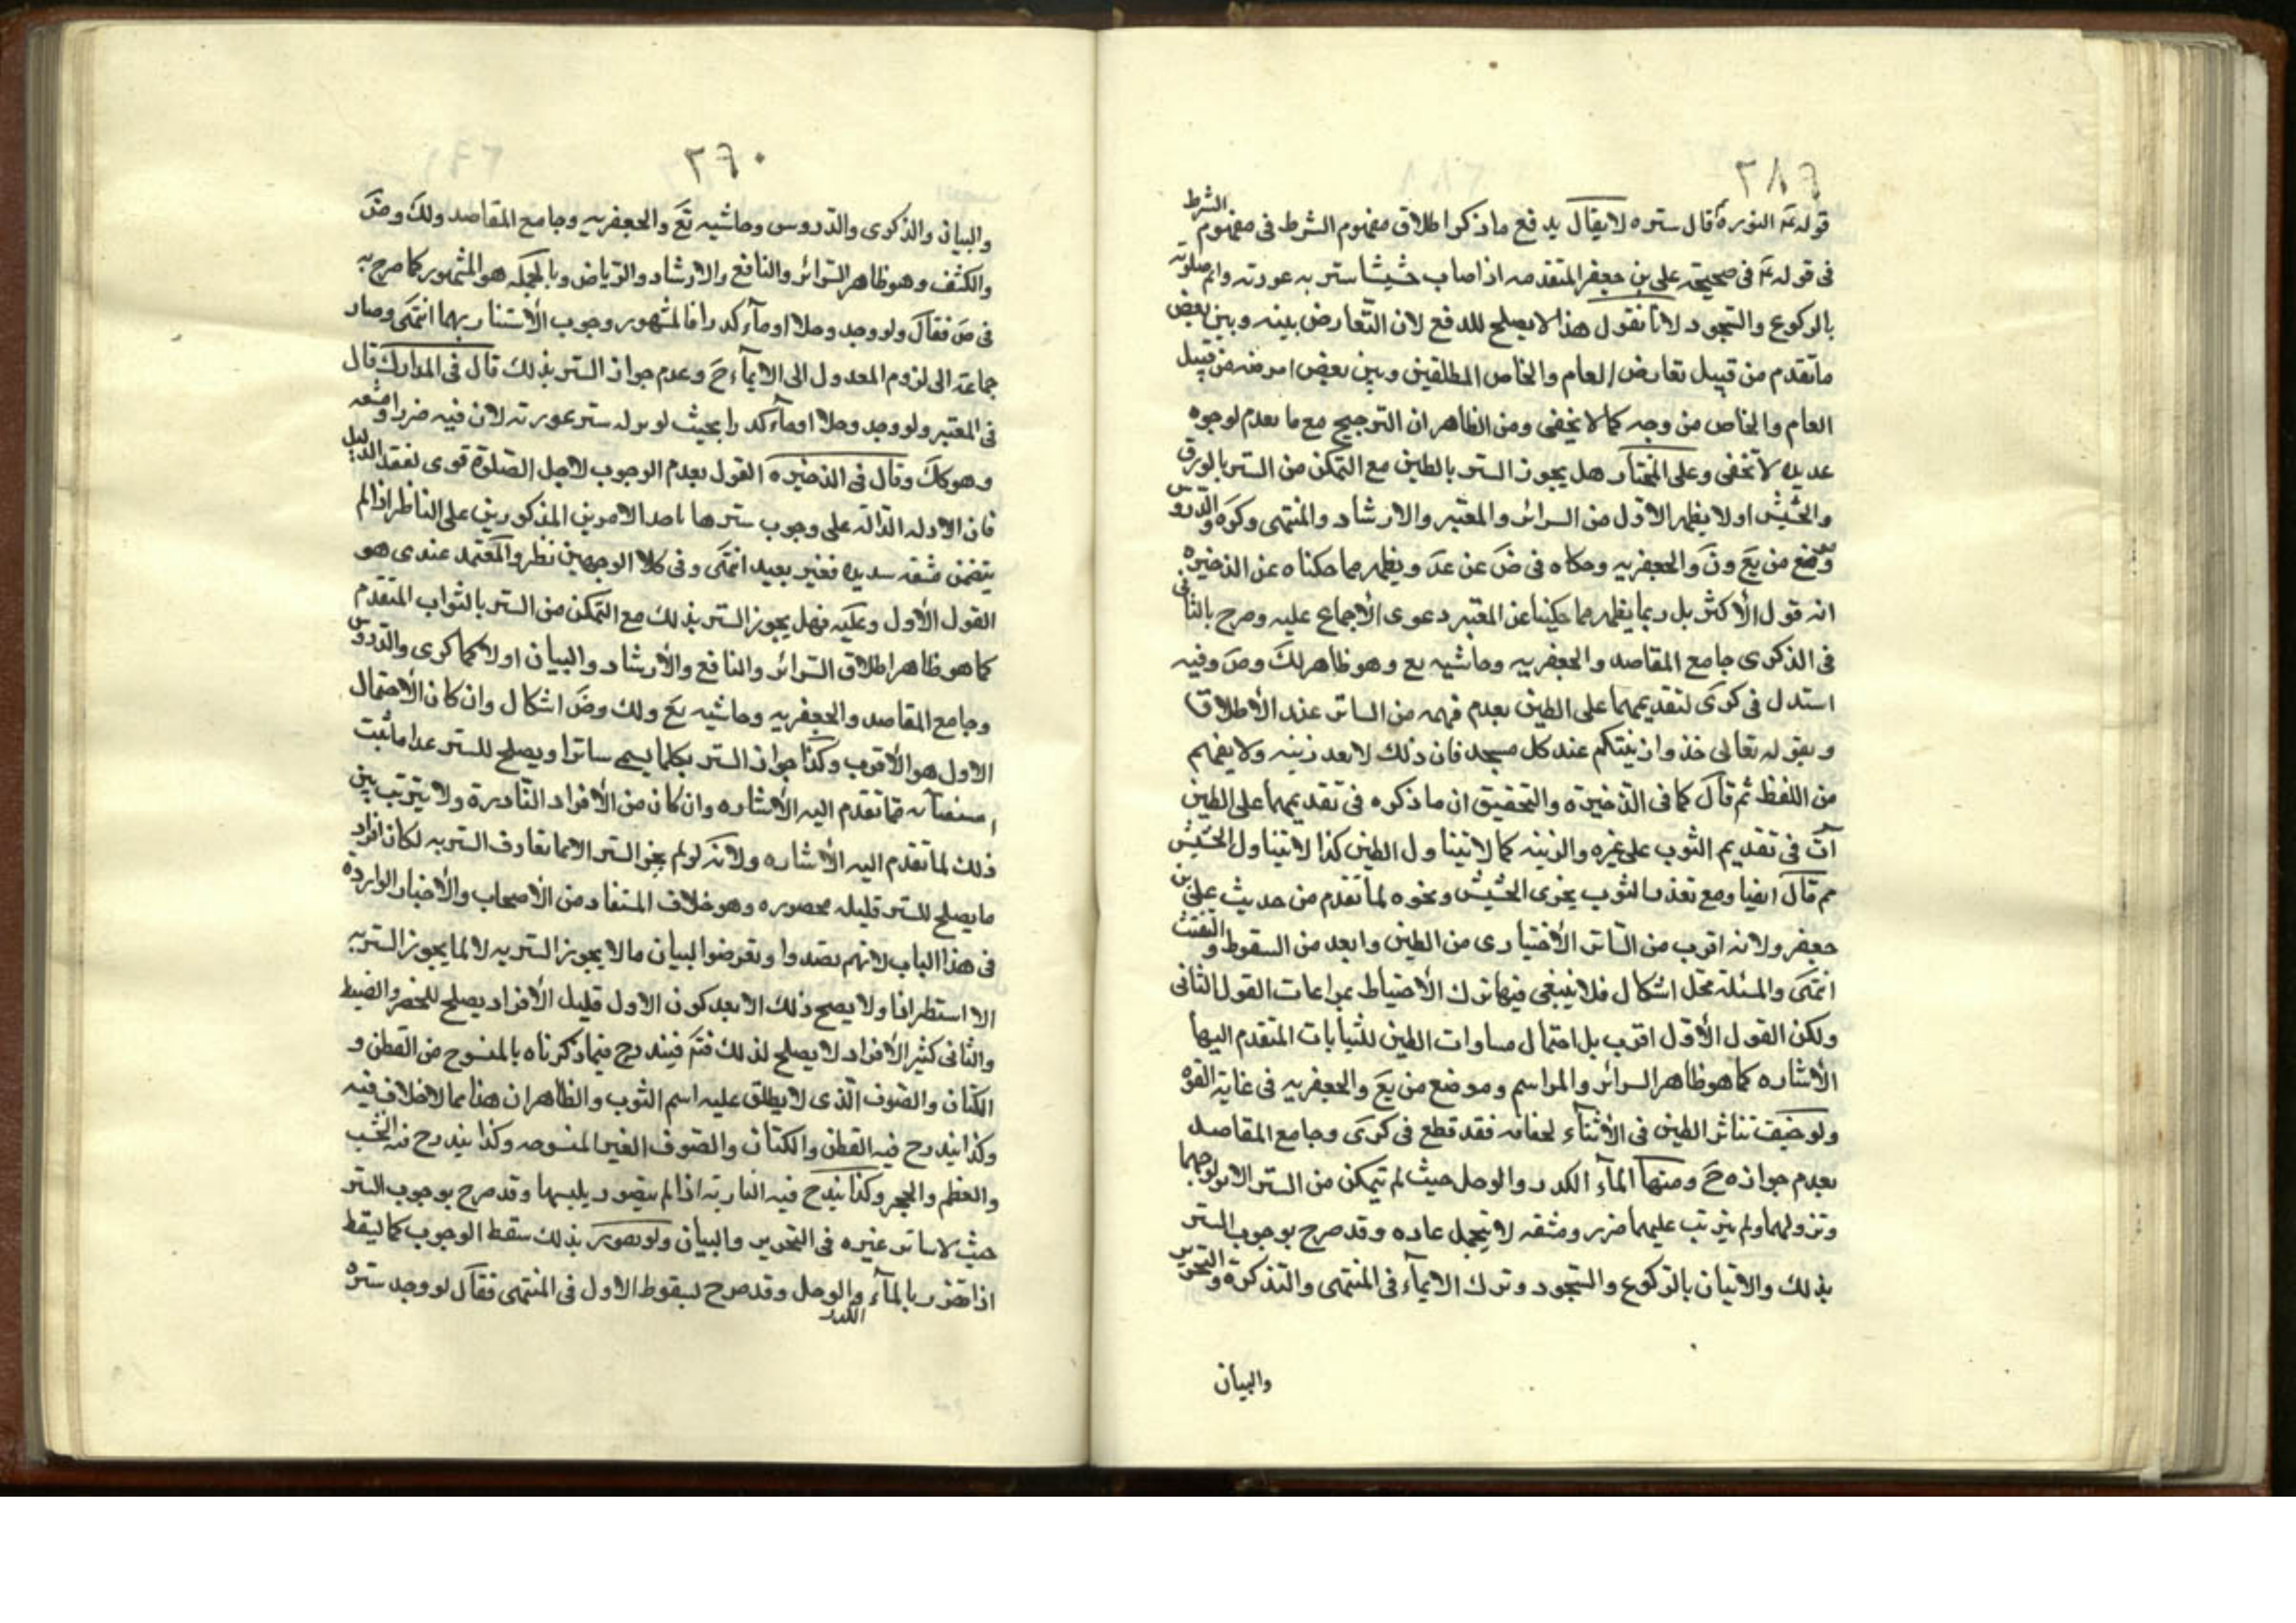 ٢٨٩
قوله ع النورة قال ستره لا يقال يدفع ما ذكر اطلاق مفهوم الشرط فى مفهوم الشرط
فى قوله ع فى صحيحة على بن جعفر المتقدمه اذا اصاب حشيشا ستر به عورته واتم صلوته
بالركوع والسجود لانا نقول هذا لا يصلح للدفع لان التعارض بينه وبين بعض
ما تقدم من قبيل تعارض العام والخاص المطلقين وبين بعض اخر منه من قبيل
العام والخاص من وجه كما لا يخفى ومن الظاهر ان الترجيح مع ما تقدم لوجوه
عديده لا تخفى وعلى المختار هل يجوز الستر بالطين مع التمكن من الستر بالورق
والحشيش اولا يظهر الاول من السرائر والمعتبر والارشاد والمنتهى وكره والدروس
وموضع من يع ون والجعفريه وحكاه فى ض عن عد ويظهر مما حكناه عن الذخيره
انه قول الأكثر بل ربما يظهر مما حكينا عن المعتبر دعوى الأجماع عليه وصرح بالثانى
فى الذكرى جامع المقاصد والجعفريه وحاشيه يع وهو ظاهر لك وض وفيه
استدل فى كرى لتقديمهما على الطين بعدم فهمه من الساتر عند الأطلاق
وبقوله تعالى خذوا زينتكم عند كل مسجد فان ذلك لا يعد زينه ولا يفهم
من اللفظ ثم قال كما فى الذخيرة والتحقيق ان ما ذكره فى تقديمهما على الطين
آت فى تقديم الثوب على غيره والزينه كما لا تتناول الطين كذا لا تتناول الحشيش
ثم قال ايضا ومع تعذر الثوب يجزى الحشيش ونحوه لما تقدم من حديث على بن
جعفر ولانه اقرب من الساتر الأختيارى من الطين وابعد من السقوط والتفتت
انتهى والمسئلة محل اشكال فلا ينبغى فيها ترك الأحتياط بمراعات القول الثانى
ولكن القول الأول اقرب بل احتمال مساوات الطين للثيابات المتقدم اليها
الأشاره كما هو ظاهر السرائر والمراسم وموضع من يع والجعفريه فى غاية القوه
ولو خيف تناثر الطين فى الأثناء لجفافه فقد قطع فى كرى وجامع المقاصد
بعدم جوازه ح ومنها الماء الكدر والوحل حيث لم يتمكن من الستر الا بولوجهما
ونزولهما ولم يترتب عليهما ضرر ومشقه لا يتحمل عاده وقد صرح بوجوب الستر
بذلك والاتيان بالركوع والسجود وترك الايماء فى المنتهى والتذكرة والتحرير
والبيان
٢٩٠
والبيان والذكرى والدروس وحاشيه يع والجعفريه وجامع المقاصد ولك وض
والكشف وهو ظاهر السرائر والنافع والارشاد والرياض وبالجمله هو المشهور كما صرح به
فى ض فقال ولو وجد وحلا او ماء كدرا فالمشهور وجوب الأستتار بهما انتهى وصار
جماعة الى لزوم العدول الى الايماء ح وعدم جواز الستر بذلك قال فى المدارك قال
فى المعتبر ولو وجد وحلا او ماء كدرا بحيث لو نزله ستر عورته لان فيه ضررا ومشقه
وهو كك وقال فى الذخيره القول بعدم الوجوب لاجل الصلوة قوى لفقد الدليل
فان الادله الدالة على وجوب سترها باحد الامرين المذكورين على الناظر اذا لم
يتضمن مشقه شديده فغير بعيد انتهى وفى كلا الوجهين نظر والمعتمد عندى هو
القول الأول وعليه فهل يجوز الستر بذلك مع التمكن من الستر بالثواب المتقدم
كما هو ظاهر اطلاق السرائر والنافع والأرشاد والبيان اولا كما كرى والدروس
وجامع المقاصد والجعفريه وحاشيه يع ولك وض اشكال وان كان الأحتمال
الاول هو الأقرب وكذا جواز الستر بكلما يسمى ساترا ويصلح للستر عدا ما ثبت
استثنائه مما تقدم اليه الأشاره وان كان من الأفراد النادرة ولا يترتب بين
ذلك لما تقدم اليه الأشاره ولانه لو لم يجز الستر الا بما تعارف الستر به لكان افراد
ما يصلح للستر قليله محصوره وهو خلاف المستفاد من الأصحاب والأخبار الوارده
فى هذا الباب لانهم تصدوا وتعرضوا لبيان ما لا يجوز الستر به لا لما يجوز الستر به
الا استطرافا ولا يصح ذلك الا بعد كون الاول قليل الأفراد يصلح للحصر والضبط
والثانى كثير الأفراد لا يصلح لذلك فتم فيندرج فيما ذكرناه بالمنسوج من القطن و
الكتان والصوف الذى لا يطلق عليه اسم الثوب والظاهر ان هذا مما لا خلاف فيه
وكذا يندرج فيه القطن والكتان والصوف الغير المنسوجه وكذا يندرج فيه الخشب
والعظم والحجر وكذا يندرج فيه الباريه اذا لم يتضرر بلبسها وقد صرح بوجوب الستر
حيث لا ساتر غيره فى التحرير والبيان ولو تضرر بذلك سقط الوجوب كما يسقط
اذا تضرر بالماء الكدر والوحل وقد صرح بسقوط الاول فى المنتهى فقال لو وجد ستره